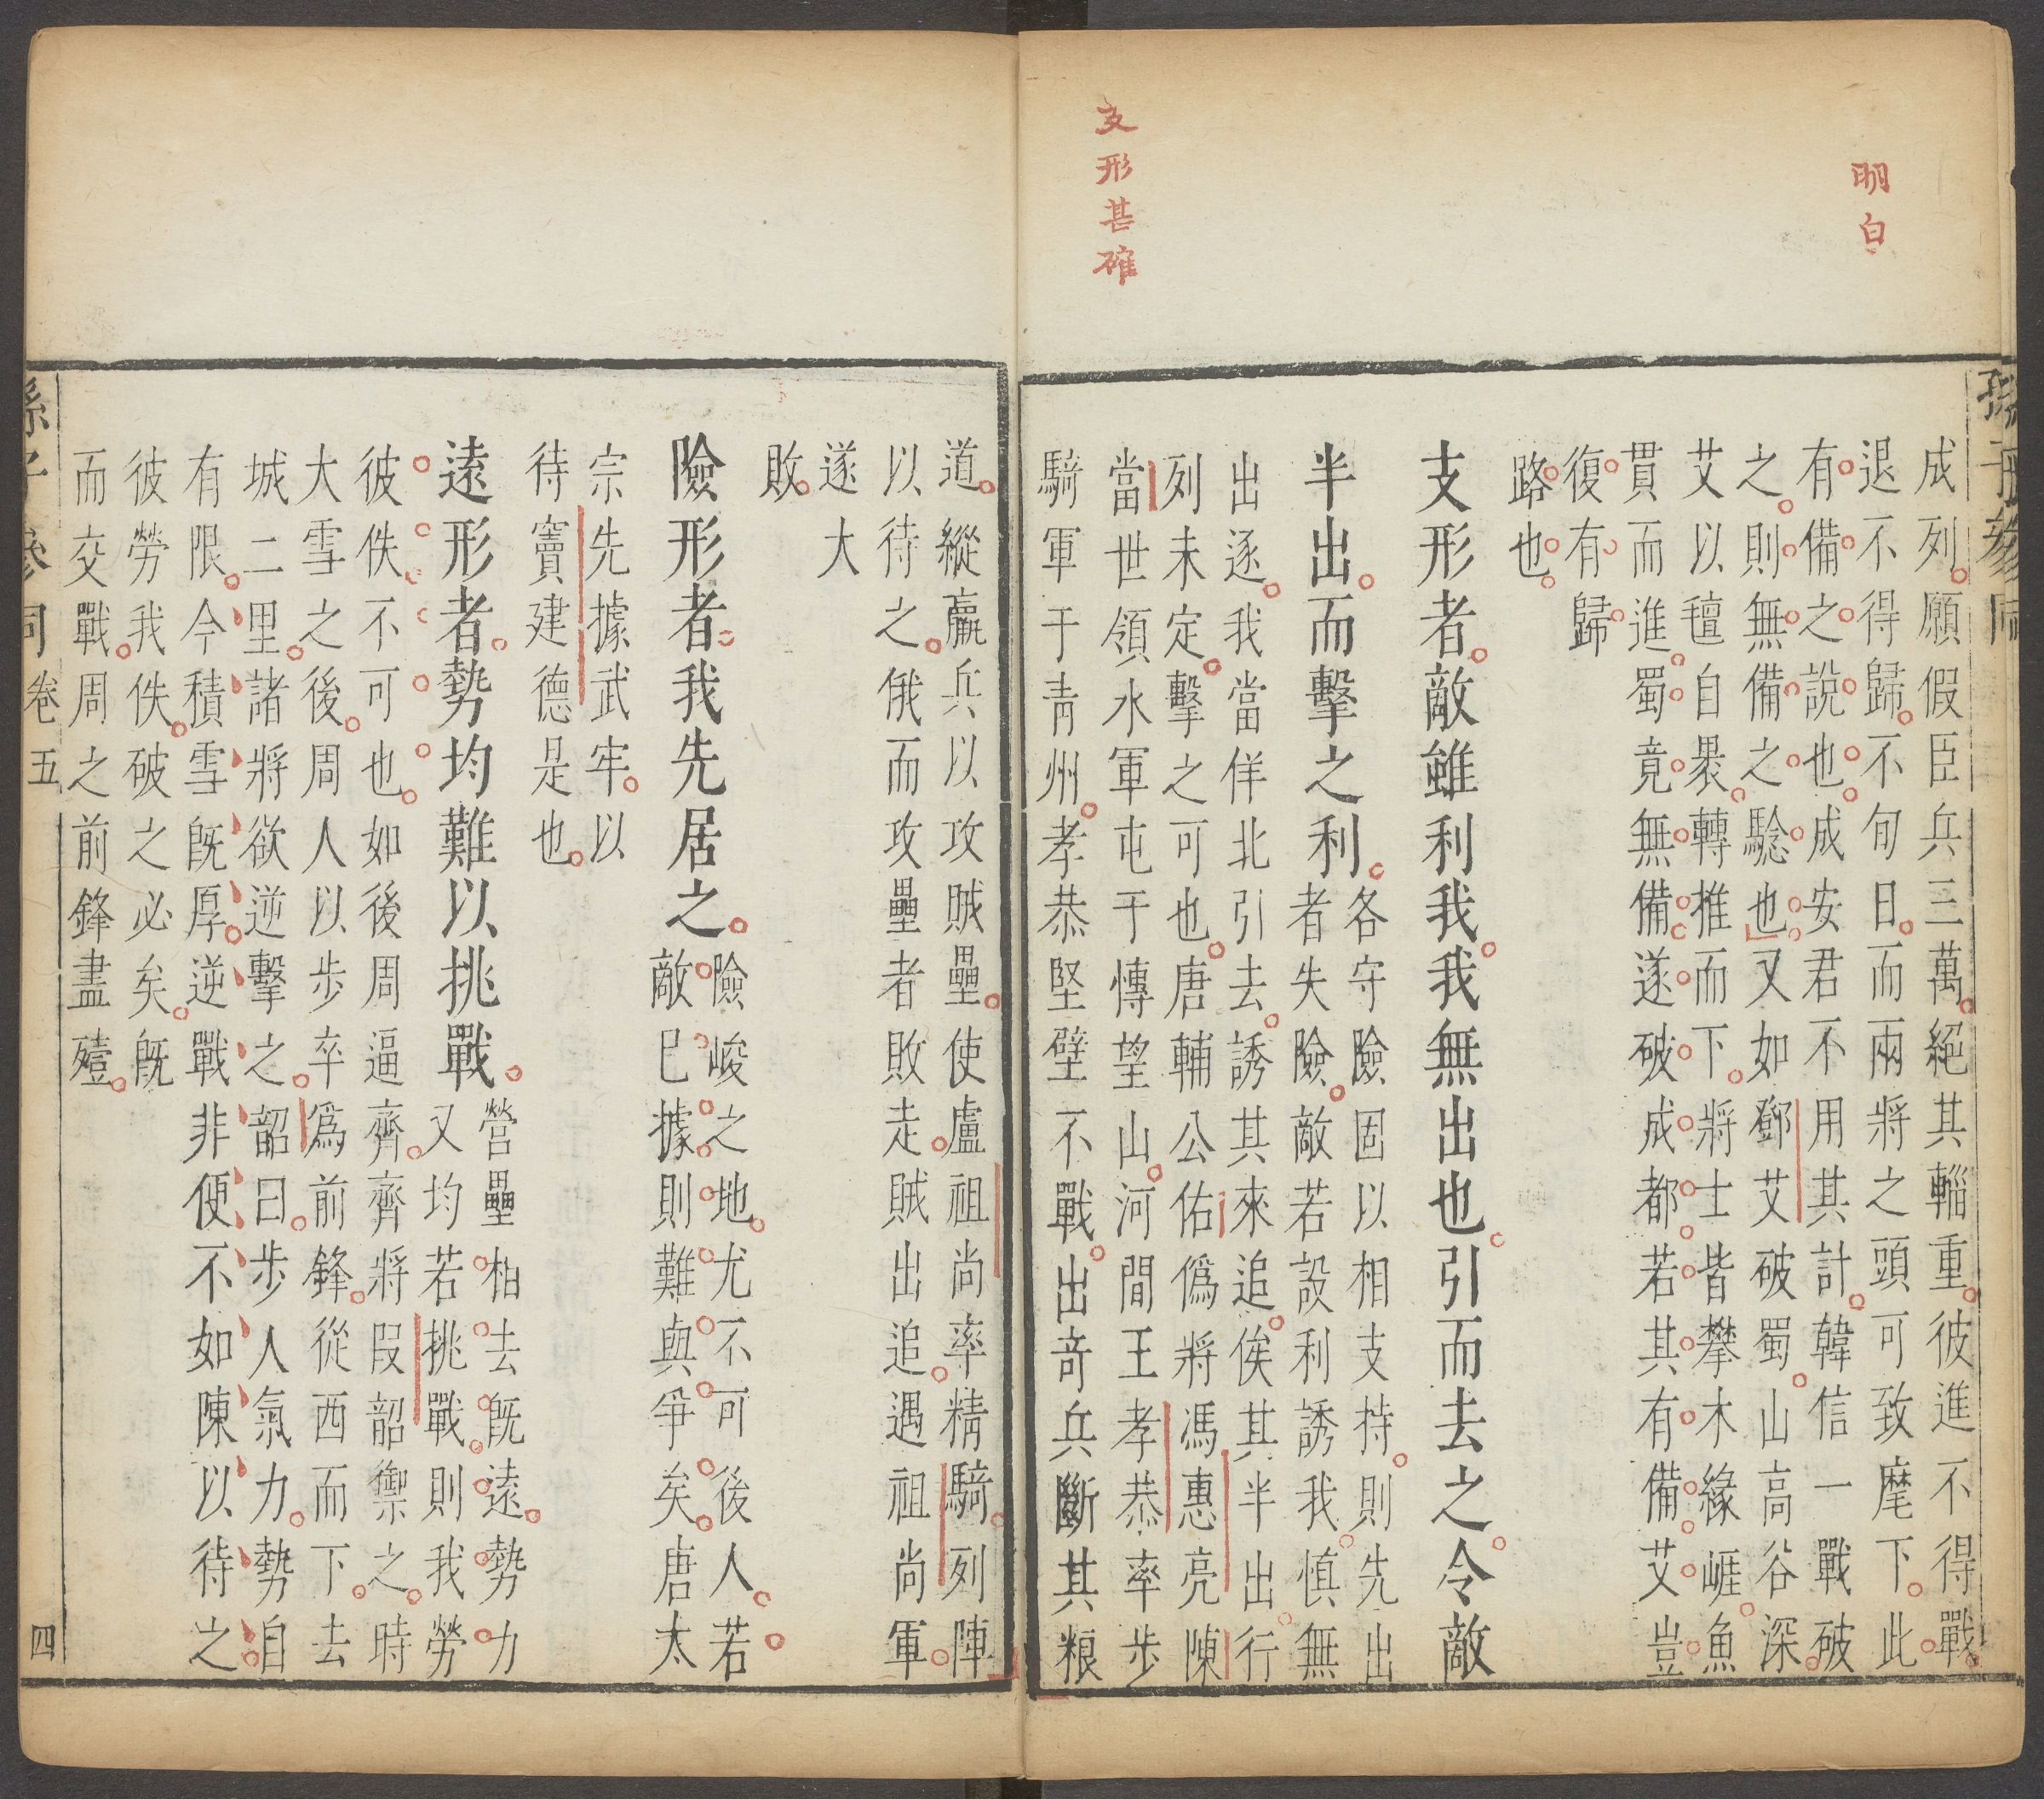 明白
支形甚確
孫子參同
成列願假臣兵三萬絕其輜重彼進不得戰
退不得歸不旬日而兩將之頭可致麾下此
有備之說也成安君不用其計韓信一戰破
之則無備之驗也又如鄧艾破蜀山高谷深
艾以氊自褁轉推而下將士皆攀木緣崕魚
貫而進蜀竟無備遂破成都若其有備艾豈
復有歸
路也
支形者敵雖利我我無出也引而去之令敵
半出而擊之利
各守險固以相支持則先出
者失險敵若設利誘我慎無
出逐我當佯北引去誘其來追俟其半出行
列未定擊之可也唐輔公佑僞將馮惠亮陳
當世領水軍屯于慱望山河間王孝恭率步
騎軍于青州孝恭堅壁不戰出奇兵斷其粮
道縱羸兵以攻賊壘使盧祖尚率精騎列陣
以待之俄而攻壘者敗走賊出追遇祖尚軍
遂大
敗
險形者我先居之
險峻之地尤不可後人若
敵已據則難與爭矣唐太
宗先據武牢以
待竇建德是也
遠形者勢均難以挑戰
營壘相去旣遠勢力
又均若挑戰則我勞
彼佚不可也如後周逼齊齊將段韶禦之時
大雪之後周人以步卒爲前鋒從西而下去
城二里諸將欲逆擊之韶曰步人氣力勢自
有限今積雪旣厚逆戰非便不如陳以待之
彼勞我佚破之必矣旣
而交戰周之前鋒盡殪
孫子參同卷五
四